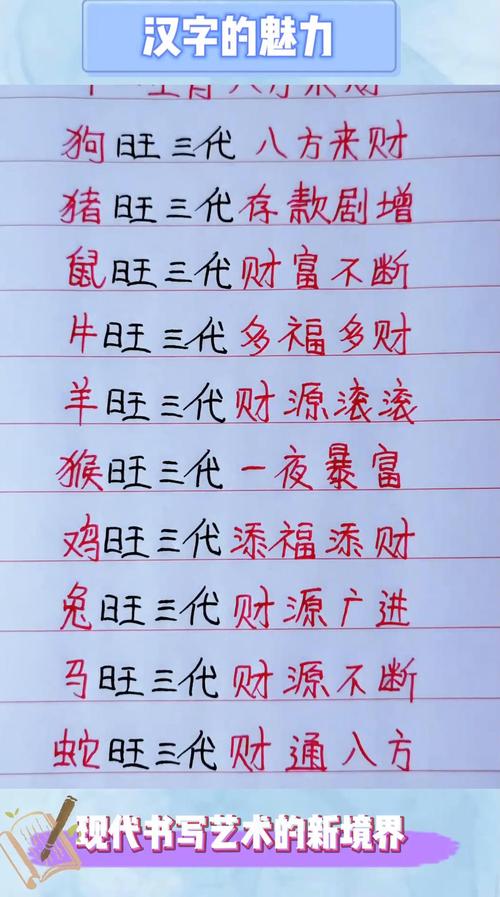 汉字的魅力
十二生肖八方来财
狗旺三代 八方来财
猪旺三代存款剧增
鼠旺三代财富不断
牛旺三代多福多财
羊旺三代财源滚滚
猴旺三代 一夜暴富
鸡旺三代添福添财
兔旺三代财源广进
马旺三代财源不断
蛇旺三代财通八方
现代书写艺术的新境界